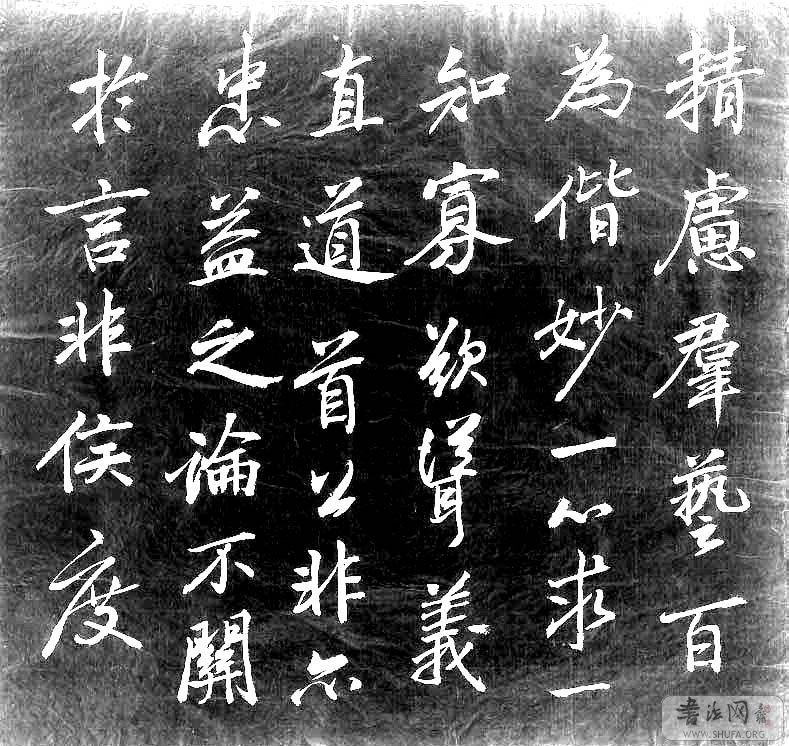 精慮羣藝百
為偕妙一心求一
知寡欲聳義
直道首公非尒
忠益之論不關
於言非俟度
書法网
WWW.SHUFA.ORG